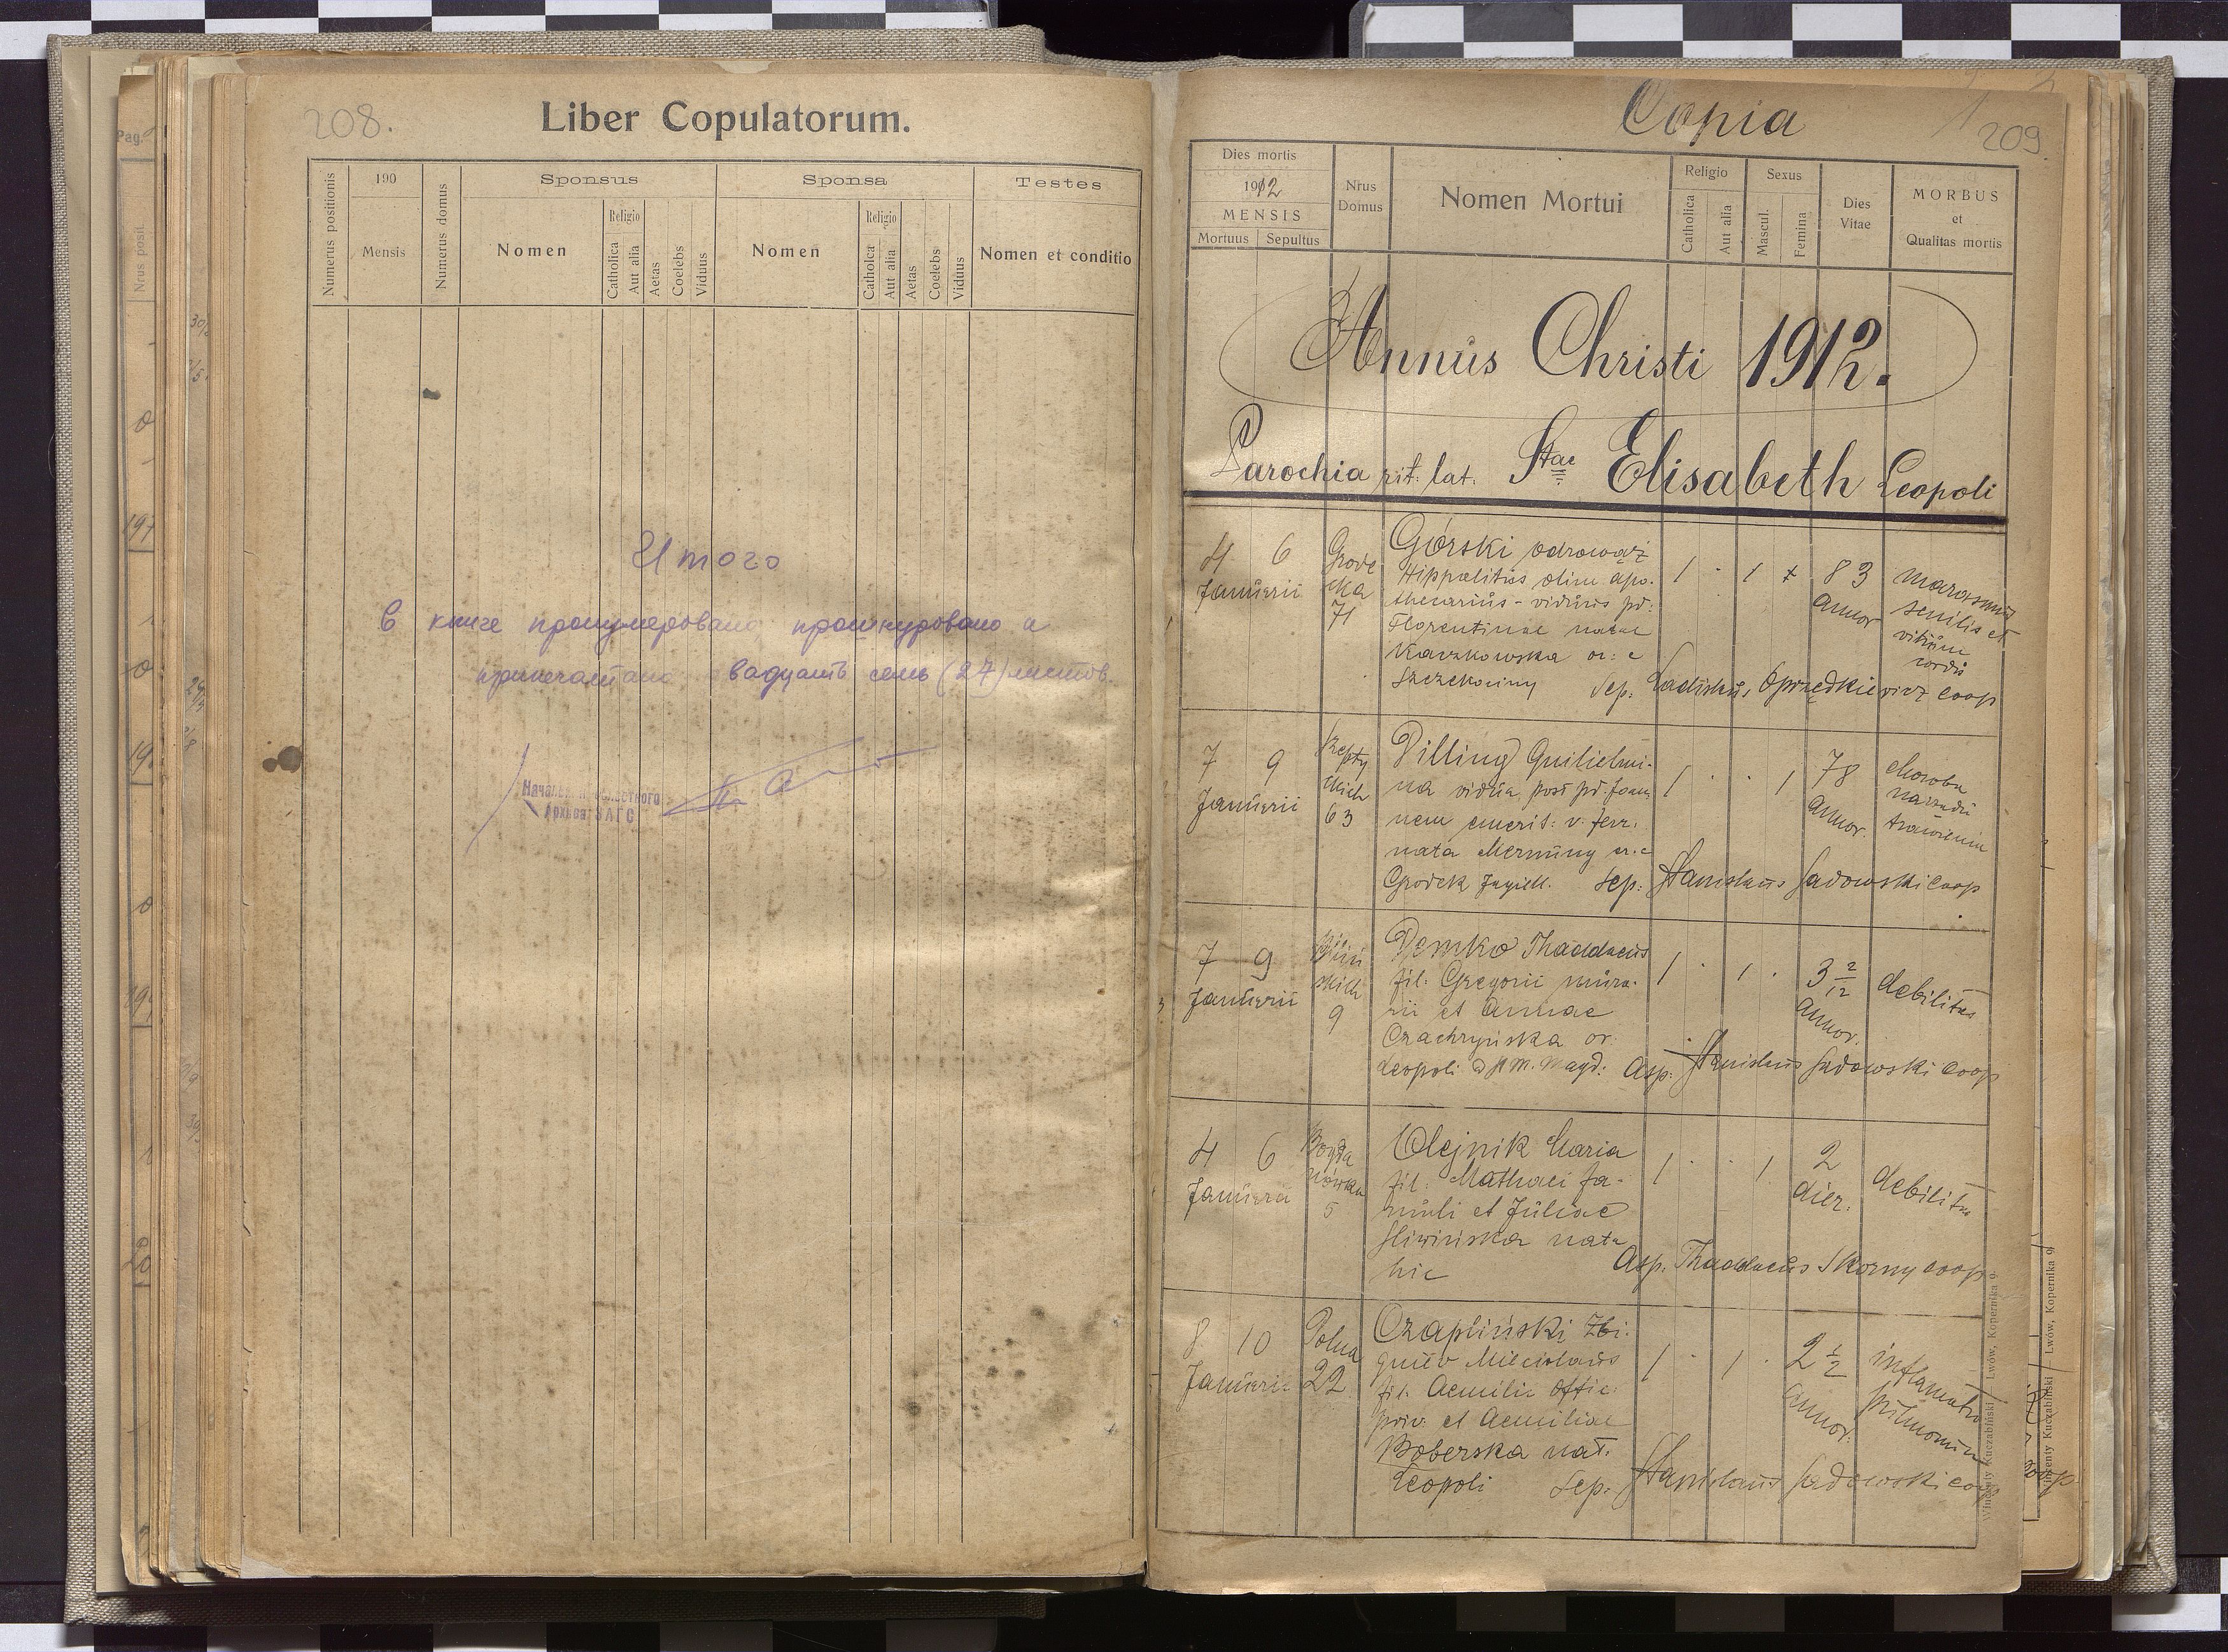 208.
Liber Copulatorum.
Numerus positionis
190
Mensis
Numerus domus
Sponsus
Nomen
Religio
Catholica
Aut alia
Aetas
Coelebs
Viduus
Sponsa
Nomen
Religio
Catholca
Aut alia
Aetas
Coelebs
Viduus
Testes
Nomen et conditio
Итого
В книге пронумеровано прошнуровано и
припечатано двадцать семь (27) листов.
Архива ЗАГС
Pag.
Nrus posit.
Copia
209.
Dies mortis
1912
MENSIS
Mortuus Sepultus
Nrus Domus
Nomen Mortui
Religio
Catholica
Aut alia
Sexus
Mascul.
Femina
Dies Vitae
MORBUS
et
Qualitas mortis
Annus Christi 1912.
Parochia rit. lat. Stae Elisabeth Leopoli
4 6 Januarii
Grode
cka
71
Górski Odrowąż
Hippolitus olim apo-
thecarius - viduus pd:
Florentinae natae
Kaczkowska or: e
Szczekociny Sep: Ladislaus Oprzędkiewicz coop
1 1 83 Annor
marasmus
senilis et
vitium
cordis
7 9 Januarii
63
Pilling Guilielmi-
na vidua post pd. Joan
nem emerit: v. ferr.
nata Mernung or. e
Grodek Jagiell. Sep: Stanislaus Sadowski coop
1 1 78 Annor.
choroba
narzadu
trawienia
7 9 Januarii
9
Demko Thaddaeus
fil: Gregorii mura-
rii et Annae
Czachryńska or:
Leopoli Asp: Stanislaus Sadowski coop
1 1 3 2/12 Annor.
debilitas
4 6 Januarii
Bogda
nówka
5
Olejnik Maria
fil: Mathaei fa-
muli et Juliae
Sliwińska nata
hic Asp. Thaddaeus Skorny coop
1 1 2 dier.
debilitas
8 10 Januarii
Polna
22
Czapliński Zbi-
gniew Miecislaus
fil. Aemilii offic.
priv: et Aemiliae
Boberska nat.
Leopoli Sep: Stanislaus Sadowski coop
1 1 2 1/2 Annor.
inflamatio
pulmonum
Wincenty Kuczabiński Lwów, Kopernika 9
Wincenty Kuczabiński Lwów, Kopernika 9
coop